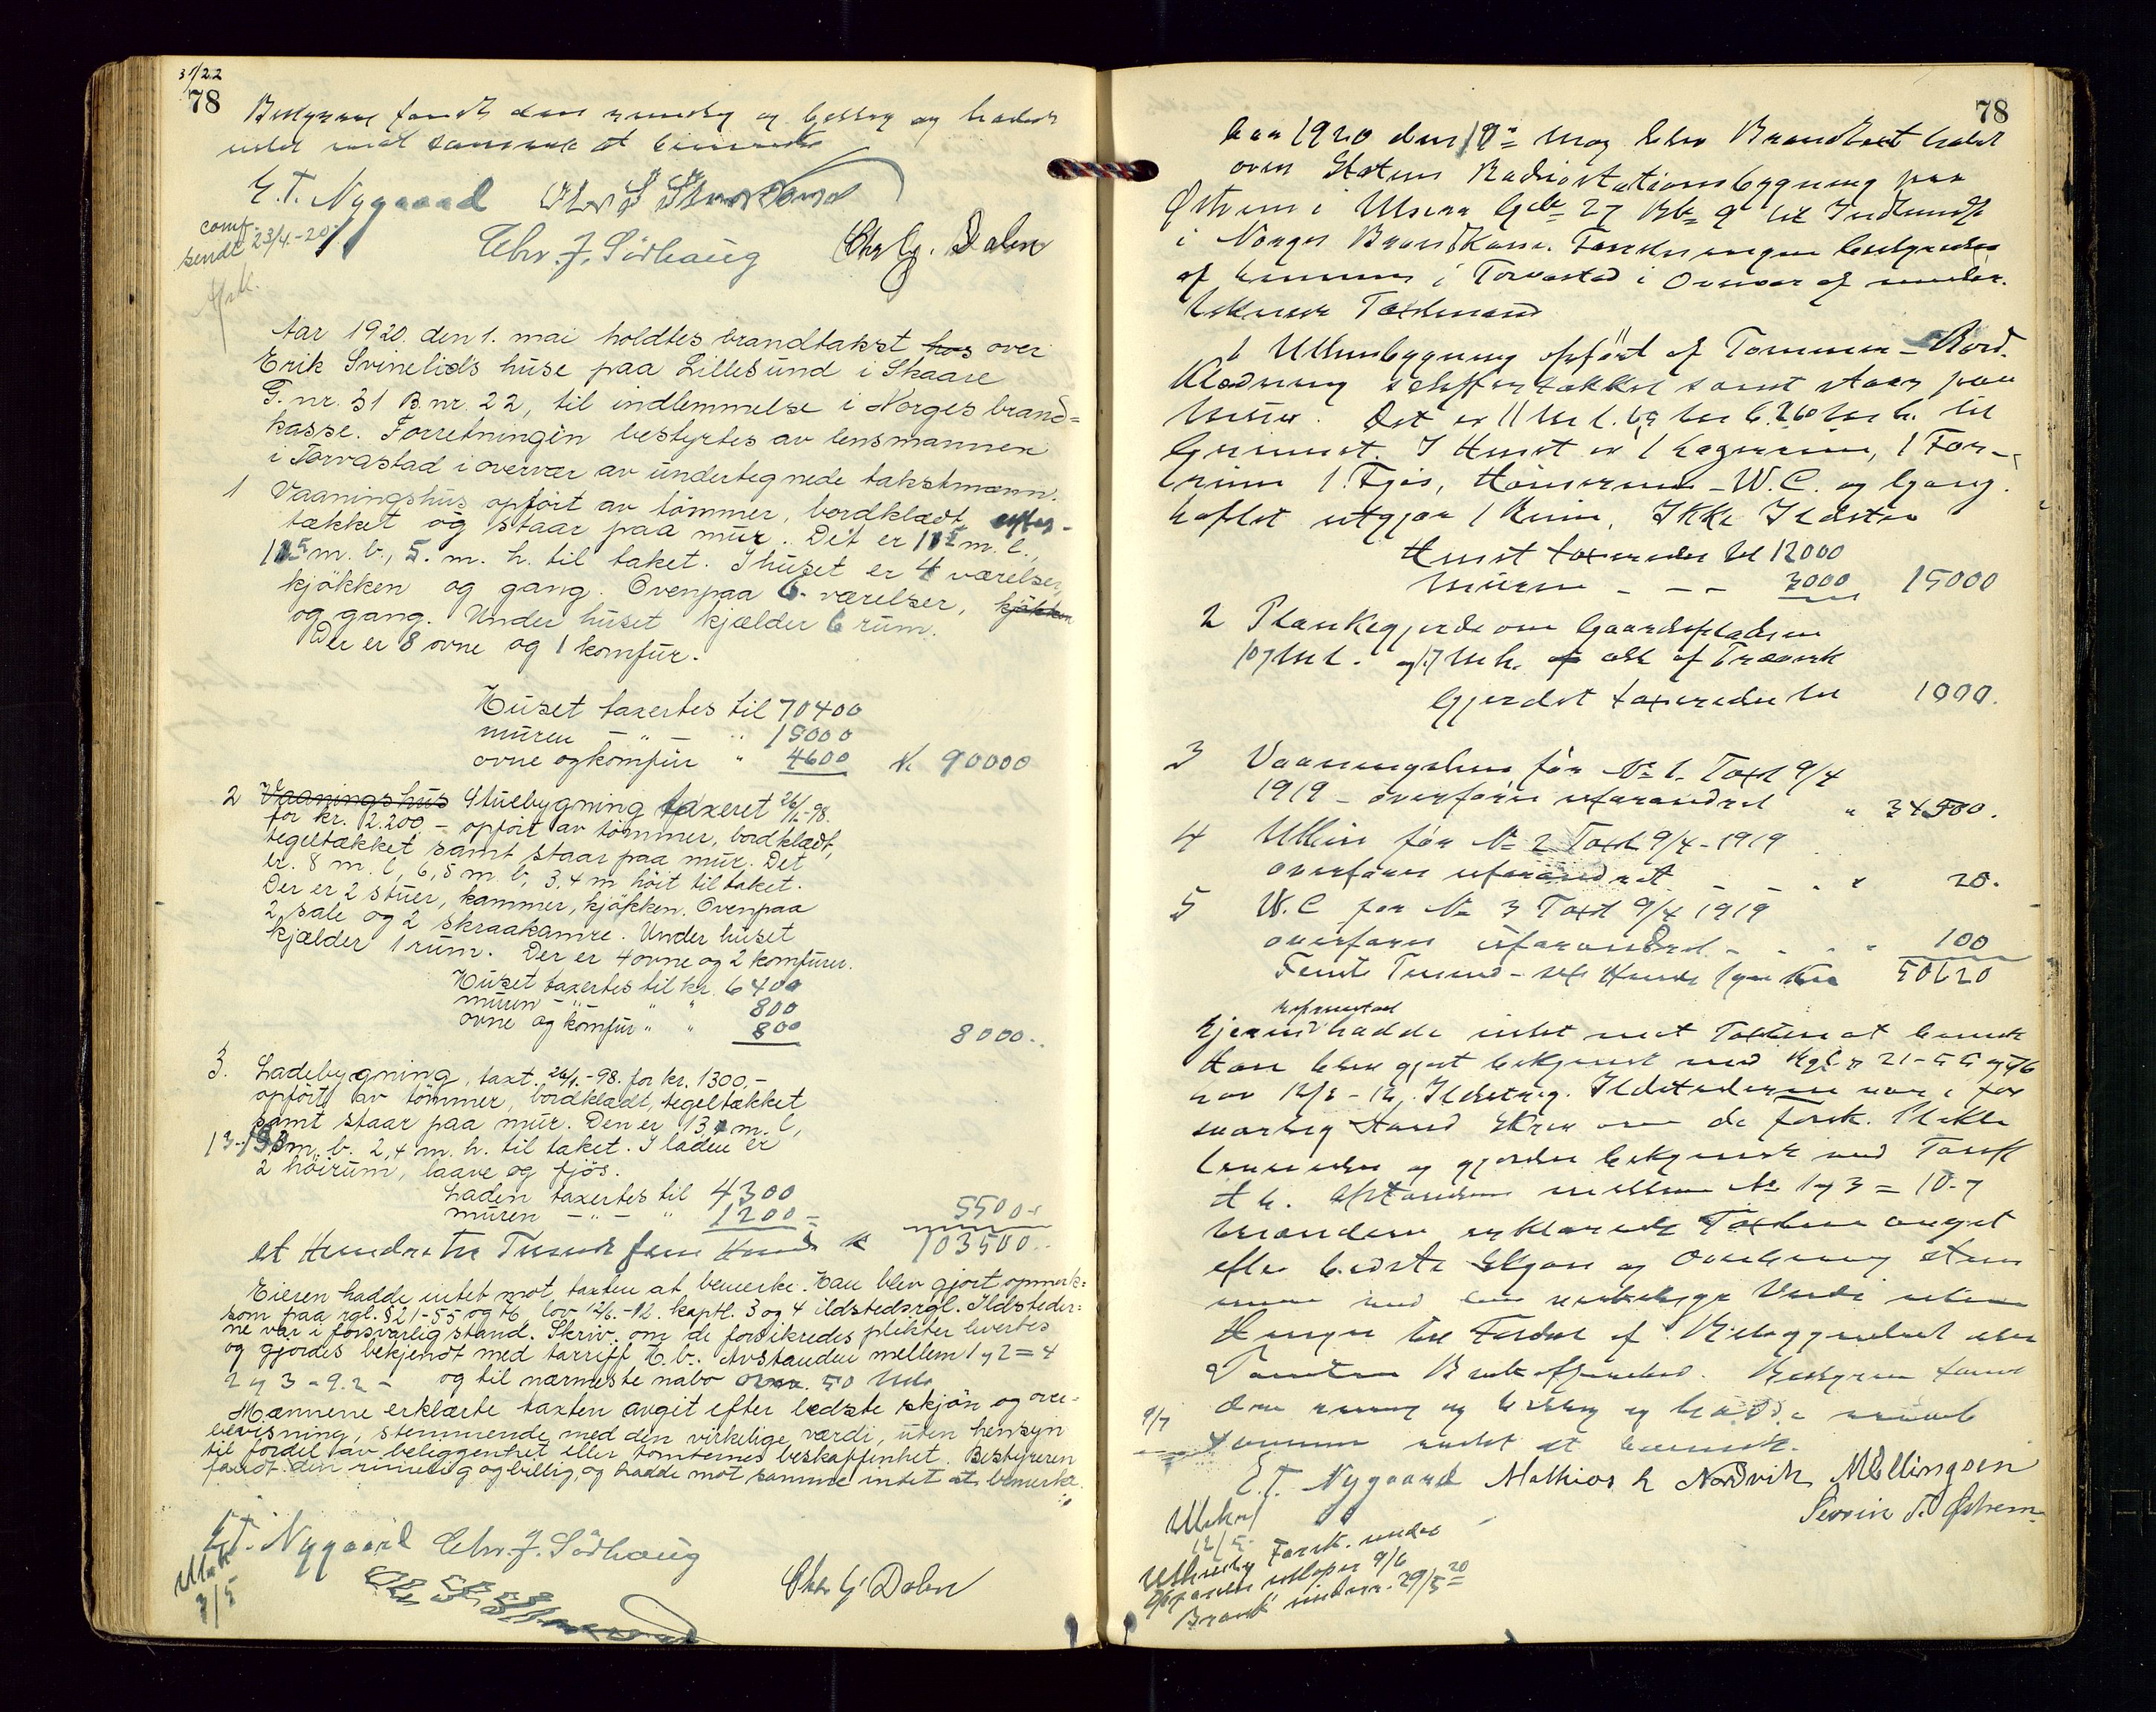 31/22
78
Bestyreren fandt den rimelig og billig og hadde
intet mot samme at bemerke
E. T. Nygaard
Chr. J. Sörhaug Chr G. Dalen
comf.
sendt 23/4.-20.
Aar 1920. den 1. mai holdtes brandtakst hos over
Erik Svinelids huse paa Lillesund i Skaare
G. nr. 31 B. nr. 22, til indlemmelse i Norges brand=
kasse. Forretningen bestyrtes av lensmannen
i Torvastad i overvær av undertegnede takstmænn.
1 Vaaningshus opfört av tömmer, bordklædt,
tækket og staar paa mur. Det er m. l.,
m. b., 5. m. h. til taket. I huset er 4 værelser,
kjökken og gang. Ovenpaa 6. værelser, kjøkken
og gang. Under huset kjælder 6 rum.
Der er 8 ovne og 1 komfur.
Huset taxertes til 70400
muren - " - " 15000
ovne og komfur " 4600 Kr 90000
2 Vaaningshus Stuebygning taxeret 26/1-98.
for kr. 2.200 - opfört av tömmer, bordklædt,
tegeltækket samt staar paa mur. Det
er. 8 m. l, 6,5 m. b, 3.4 m höit til taket.
Der er 2 stuer, kammer, kjøkken. Ovenpaa
2 sale og 2 skraakamre. Under huset
kjælder 1 rum. Der er 4 ovne og 2 komfurer.
Huset taxertes til kr. 6400
muren - " - " " 800
ovne og komfur " " 800 8000..
3. Ladebygning, taxt. 26/1.-98. for kr. 1300.-
opfört av tömmer, bordklædt, tegeltækket
samt staar paa mur. Den er 13 m. l,
m. b. 2,4 m. h. til taket. I laden er
2 höirum, laave og fjös.
Laden taxertes til 4300
muren - " - " 1200 = 5500-
et Hundre tre Tusind fem Hund Kr 103500..
Eieren hadde intet mot taxten at bemerke. Han blev gjort opmerk=
som paa rgl. § 21-55 og 76 lov 12/6.-12. kaptl. 3 og 4 ildstedsrgl. Ildsteder=
ne var i forsvarlig stand. Skriv. om de forsikredes plikter levertes
og gjordes bekjendt med tarriff H. b.. Avstanden mellem 1 y 2 = 4
2 y 3 - 9.2 - og til nærmeste nabo over. 50 Mtr
Mænnene erklærte taxten avgit efter bedste skjön og over=
bevisning, stemmende med den virkelige værdi, uten hensyn
til fordel av beleggenhet eller tomternes beskaffenhet. Bestyreren
fandt den rimelig og billig, og hadde mot samme intet at bemerke.
E. T. Nygaard Chr. J. Sörhaug
Chr G Dalen
3/5
78
Aar 1920 den 10= Maj blev Brandtaxt holdt
over Statens Radiostationsbygning paa
Østrem i Utsira Gde= 27 Bb= 9 til Indlemmelse
i Norges Brandkasse. Forretningen bestyredes
af Lensmannen i Torvastad i Overvær af under-
tegnede Taxtmænd
1 Uthusbygning opfört af Tømmer - Bord-
klædning skiffertækket samt staar paa
Murer. Det er 11 Mr l. 6,5 Mr b. 2,60 Mr h. til
Gesimset. I Huset er 1 Lagerrum, 1 For-
rum 1. Fjös, Hönserum - W.C. og Gang.
Loftet utgjør 1 Rum, Ikke Ildsted
Huset taxeredes til 12000
Muren - - - 3000 15000
2 Plankegjerde om Gaardspladsen
107 M l. og 1,7 M h. alt af Træverk
Gjerdet taxeredes til 1000.
3 Vaaningshus før No 1. Taxt 9/4
1919 - overføres uforandret " 34500.
4 Uthus før No 2 Taxt 9/4-1919
overføres uforandret - - . " 20.
5 W.C før No 3 Taxt 9/4 1919
overføres uforandret - - . " 100
Femti Tusind - sex Hundr tyve Kr 50620
Eieren hadde intet mot Taxten at bemerk
Han blev gjort bekjendt med Rgl § 21-55 og 76
Lov 12/6-12, Ildstrg. Ildstederne var i for
svarlig Stand Skriv om de forsik. Plikter
leveredes og gjordes bekjendt med Tariff
H b. Afstanden mellem No 1 y 3 = 10.7
Mændene erklærede Taxten avgit
efter bedste Skjøn og Overbevisning stem
mende med den virkelige Værdi uten
Hensyn til Fordel af Beleggenhet eller
Tomten Beskaffenhed. Bestyreren fandt
den rimelig og billig og hadde mot
samme intet at bemerk.
9/7
E. T. Nygaard Mathias L Nordvik M Ellingsen
Severin T. Østrem
12/5.
Forsk. under
utløper 9/6
29/5 20